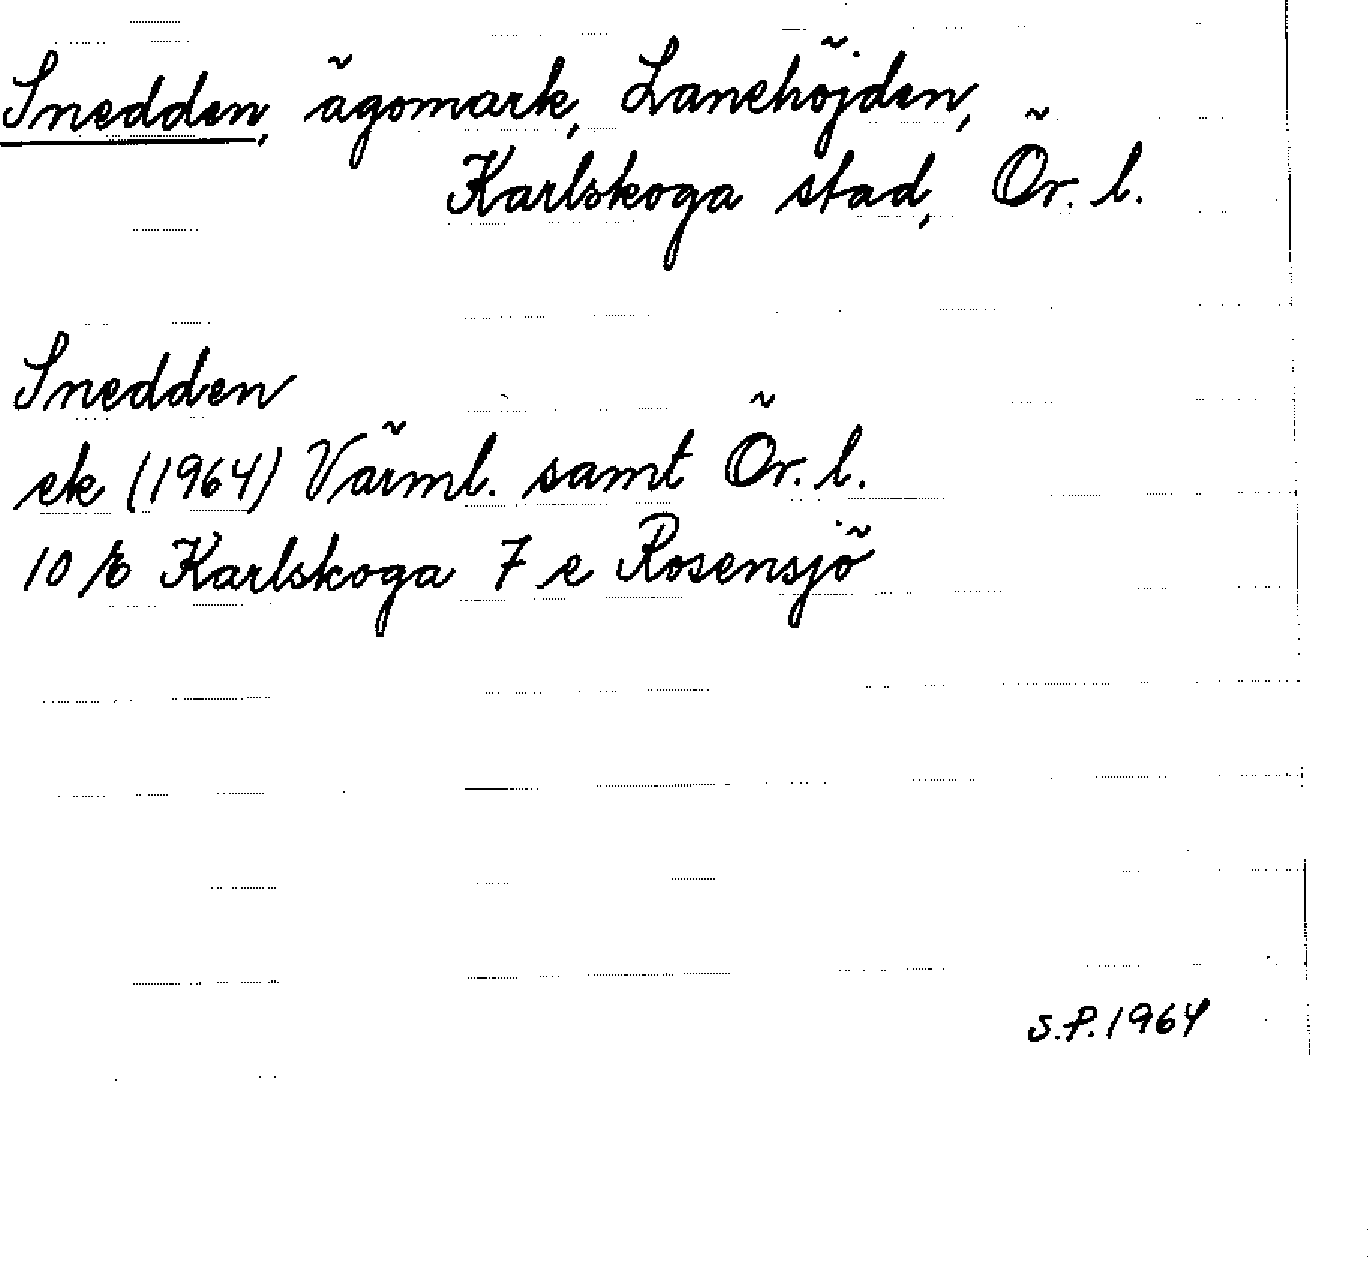 Snedden, ägomark, Lanehöjden,
Karlskoga stad, Ör. l.
Snedden
ek (1964) Värml. samt Ör. l.
10 E Karlskoga 7 e Rosensjö
S.P. 1964